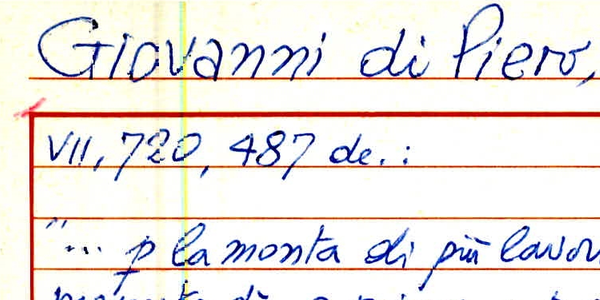 Giovanni di Piero,
VII, 720, 487 de. :
"... p la monta di più lavor